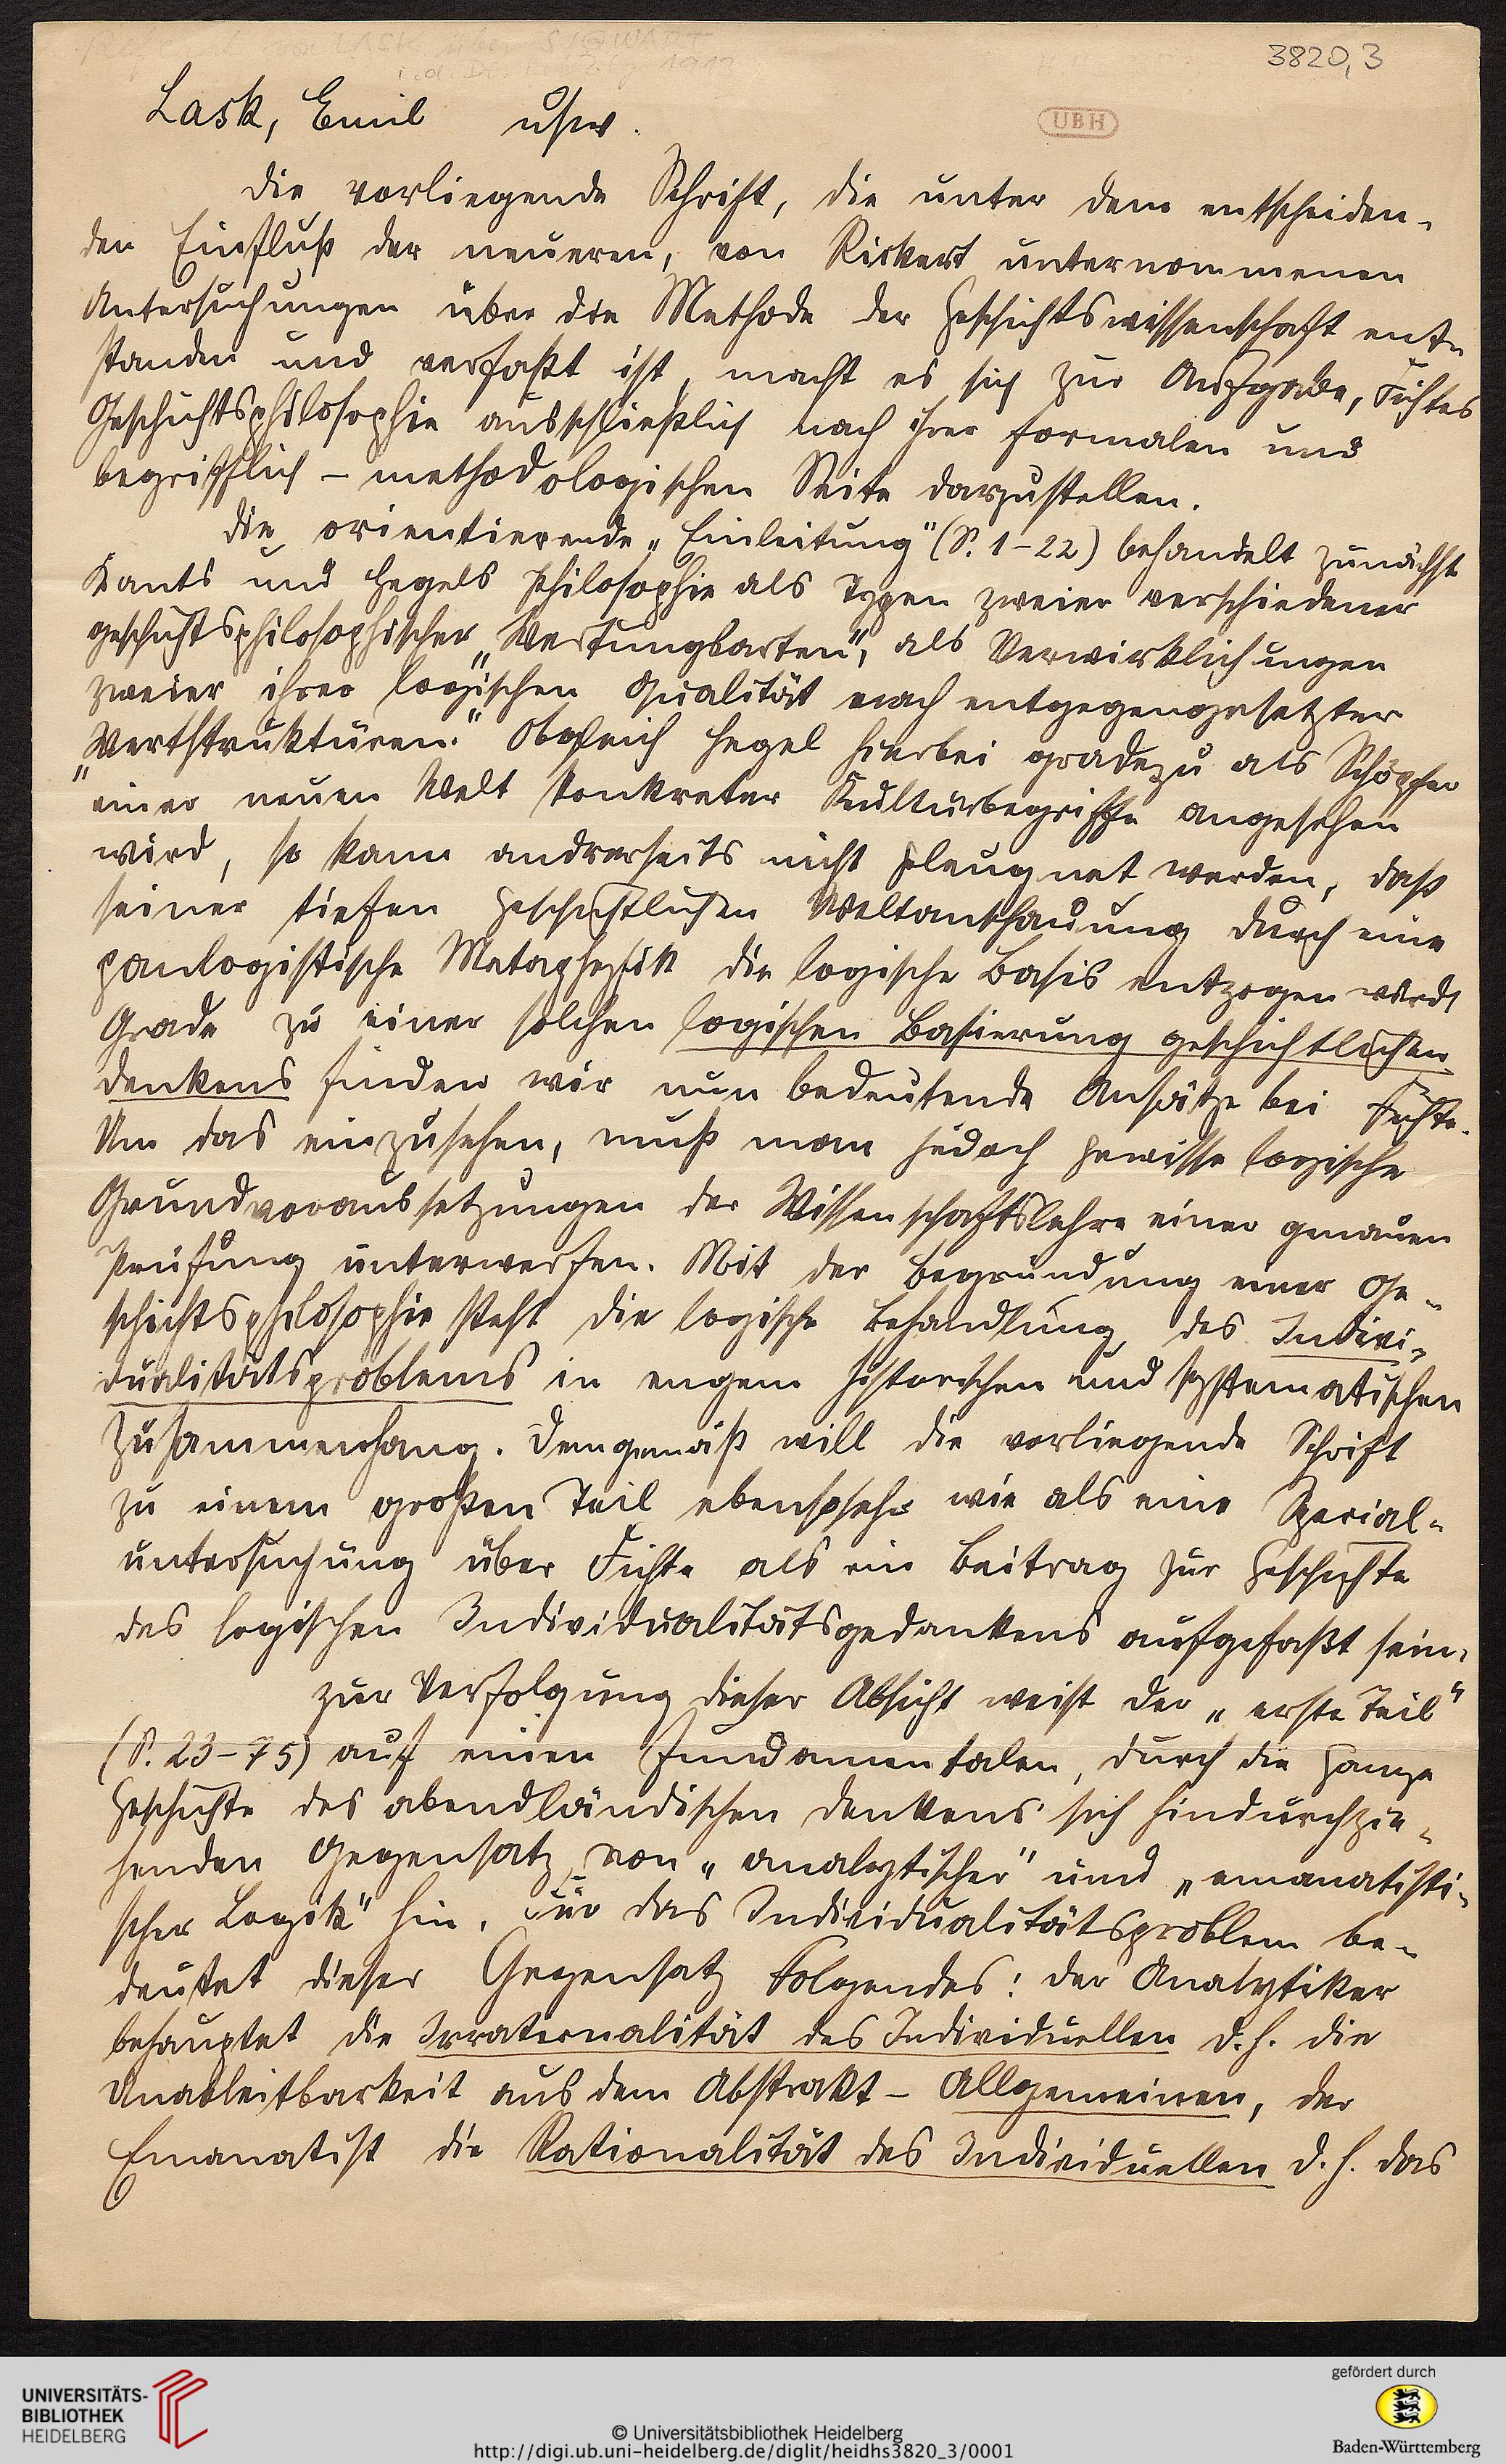 3820,3
Lask, Emil usw.
UBH
Die vorliegende Schrift, die unter dem entscheiden-
den Einfluß der neueren, von Rickert unternommenen
Untersuchungen über die Methode der Geschichtswissenschaft ent-
standen und verfaßt ist, macht es sich zur Aufgabe, Fichtes
Geschichtsphilosophie ausschließlich nach ihrer formalen und
begrifflich-methodologischen Seite darzustellen.
Die orientierende „Einleitung" (S. 1-22) behandelt zunächst
Kants und Hegels Philosophie als Typen zweier verschiedener
geschichtsphilosophischer „Wertungsarten", als Verwirklichungen
zweier ihrer logischen Qualität nach entgegengesetzter
„Wertstrukturen." Obgleich Hegel hierbei gradezu als Schöpfer
einer neuen Welt konkreter Kulturbegriffe angesehen
wird, so kann andrerseits nicht geleugnet werden, daß
seiner tiefen geschichtlichen Weltanschauung durch eine
panlogistische Metaphysik die logische Basis entzogen wird.
Grade zu einer solchen logischen Basierung geschichtlichen
Denkens finden wir nun bedeutende Ansätze bei Fichte.
Um das einzusehen, muß man jedoch gewisse logische
Grundvoraussetzungen der Wissenschaftslehre einer genauen
Prüfung unterwerfen. Mit der Begründung einer Ge-
schichtsphilosophie steht die logische Behandlung des Indivi-
dualitätsproblems in engem historischen und systematischen
Zusammenhang. Demgemäß will die vorliegende Schrift
zu einem großen Teil ebensosehr wie als eine Spezial-
untersuchung über Fichte als ein Beitrag zur Geschichte
des logischen Individualitätsgedankens aufgefaßt sein.
Zur Verfolgung dieser Absicht weist der „erste Teil"
(S. 23-75) auf einen fundamentalen, durch die ganze
Geschichte des abendländischen Denkens sich hindurchzie-
henden Gegensatz von „analytischer" und „emanatisti-
scher Logik" hin. Für das Individualitätsproblem be-
deutet dieser Gegensatz Folgendes: Der Analytiker
behauptet die Irrationalität des Individuellen d.h. die
Unableitbarkeit aus dem Abstrakt-Allgemeinen, der
Emanatist die Rationalität des Individuellen d.h. das
UNIVERSITÄTS-
BIBLIOTHEK
HEIDELBERG
© Universitätsbibliothek Heidelberg
http://digi.ub.uni-heidelberg.de/diglit/heidhs3820_3/0001
gefördert durch
Baden-Württemberg